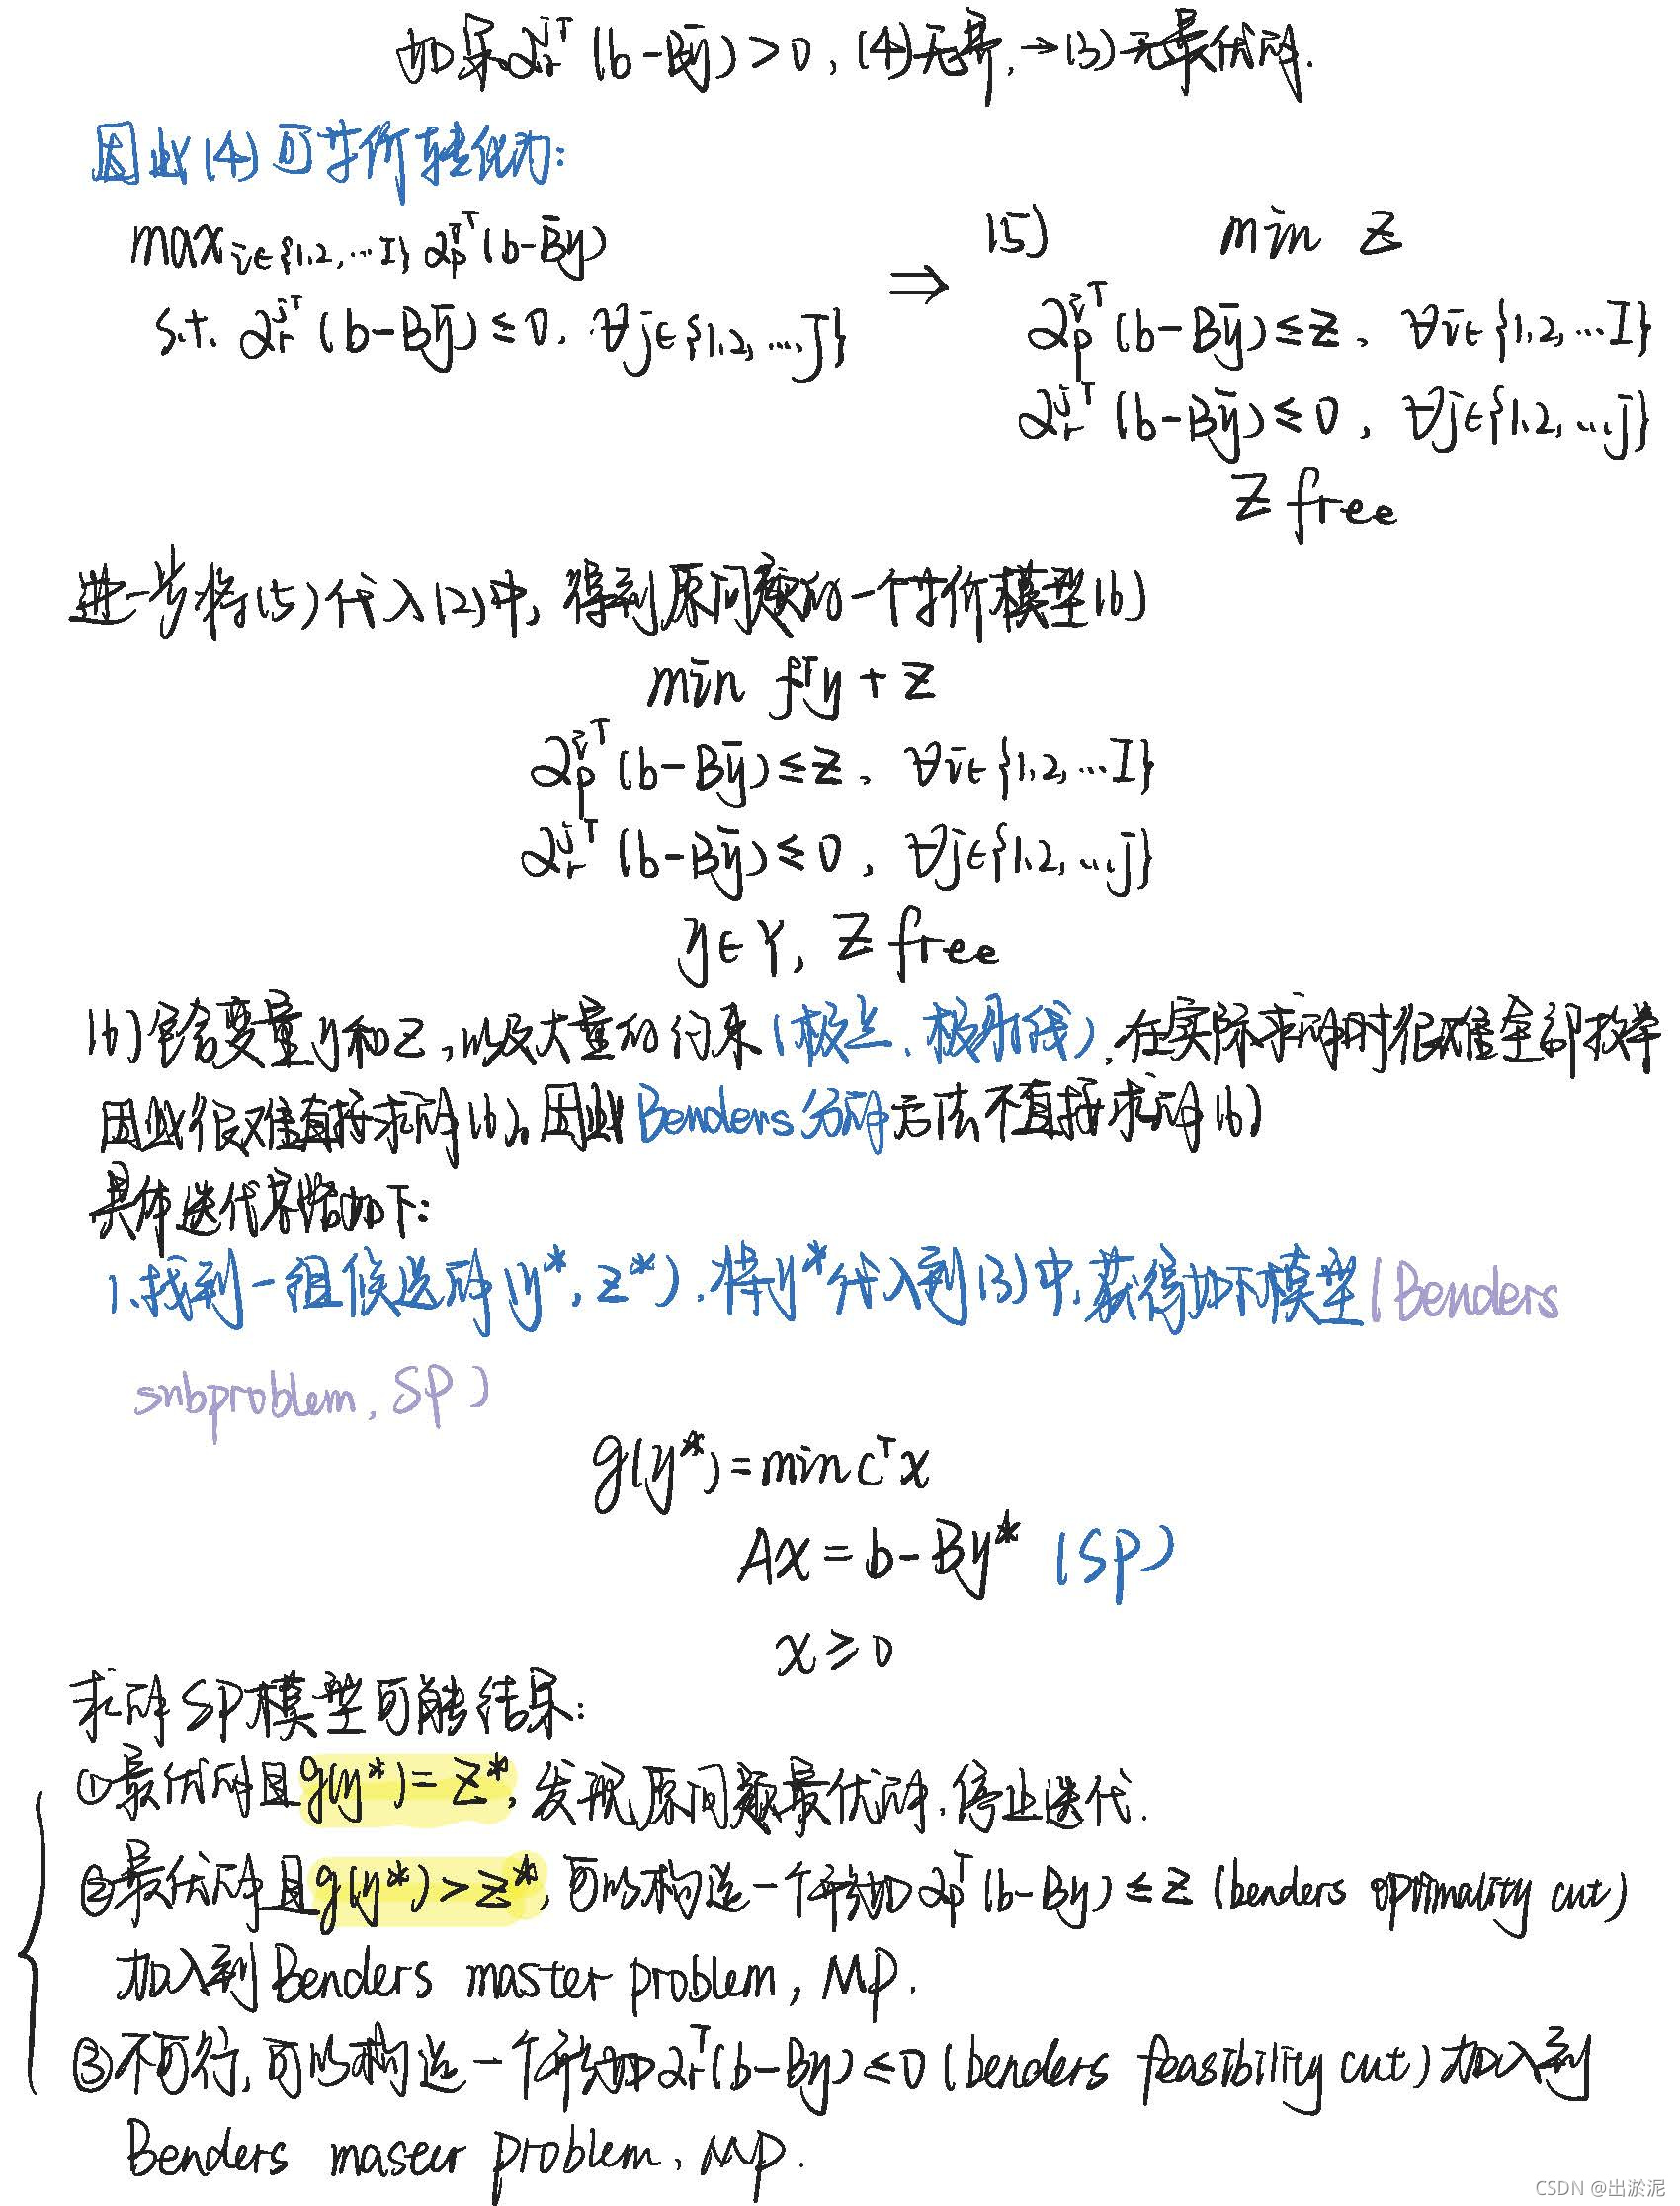 如果α_r^{jT}(b-Bȳ)>0, (4)无界, →(3)无最优解.
因此(4)可等价转化为:
max_{i∈{1,2,…I}} α_p^{iT}(b-Bȳ)
s.t. α_r^{jT}(b-Bȳ)≤0, ∀j∈{1,2,…,J}
⇒
(5) min Z
α_p^{iT}(b-Bȳ)≤Z, ∀i∈{1,2,…I}
α_r^{jT}(b-Bȳ)≤0, ∀j∈{1,2,…j}
Z free
进一步将(5)代入(2)中, 得到原问题的一个等价模型(6)
min fᵀy + Z
α_p^{iT}(b-Bȳ)≤Z, ∀i∈{1,2,…I}
α_r^{jT}(b-Bȳ)≤0, ∀j∈{1,2,…,j}
y∈Y, Z free
(6)包含变量y和Z, 以及大量的约束(极点、极射线), 在实际求解时很难全部枚举
因此很难直接求解(6), 因此Benders分解方法不直接求解(6)
具体迭代思路如下:
1. 找到一组候选解(y*, Z*). 将y*代入到(3)中, 获得如下模型(Benders
snbproblem, SP)
g(y*)=min cᵀx
Ax = b-By* (SP)
x≥0
求解SP模型可能结果:
①最优解且g(y*)=Z*, 发现原问题最优解, 停止迭代.
②最优解且g(y*)>Z*, 可以构造一个形如α_pᵀ(b-By)≤Z (benders optimality cut)
加入到Benders master problem, MP.
③不可行, 可以构造一个形如α_rᵀ(b-By)≤0 (benders feasibility cut) 加入到
Benders problem, MP.
CSDN @出淤泥